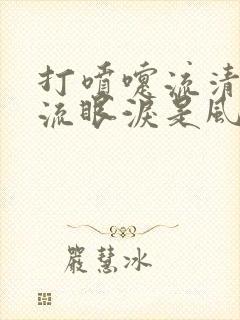 打喷嚏流清
流眼淚是風
嚴慧冰